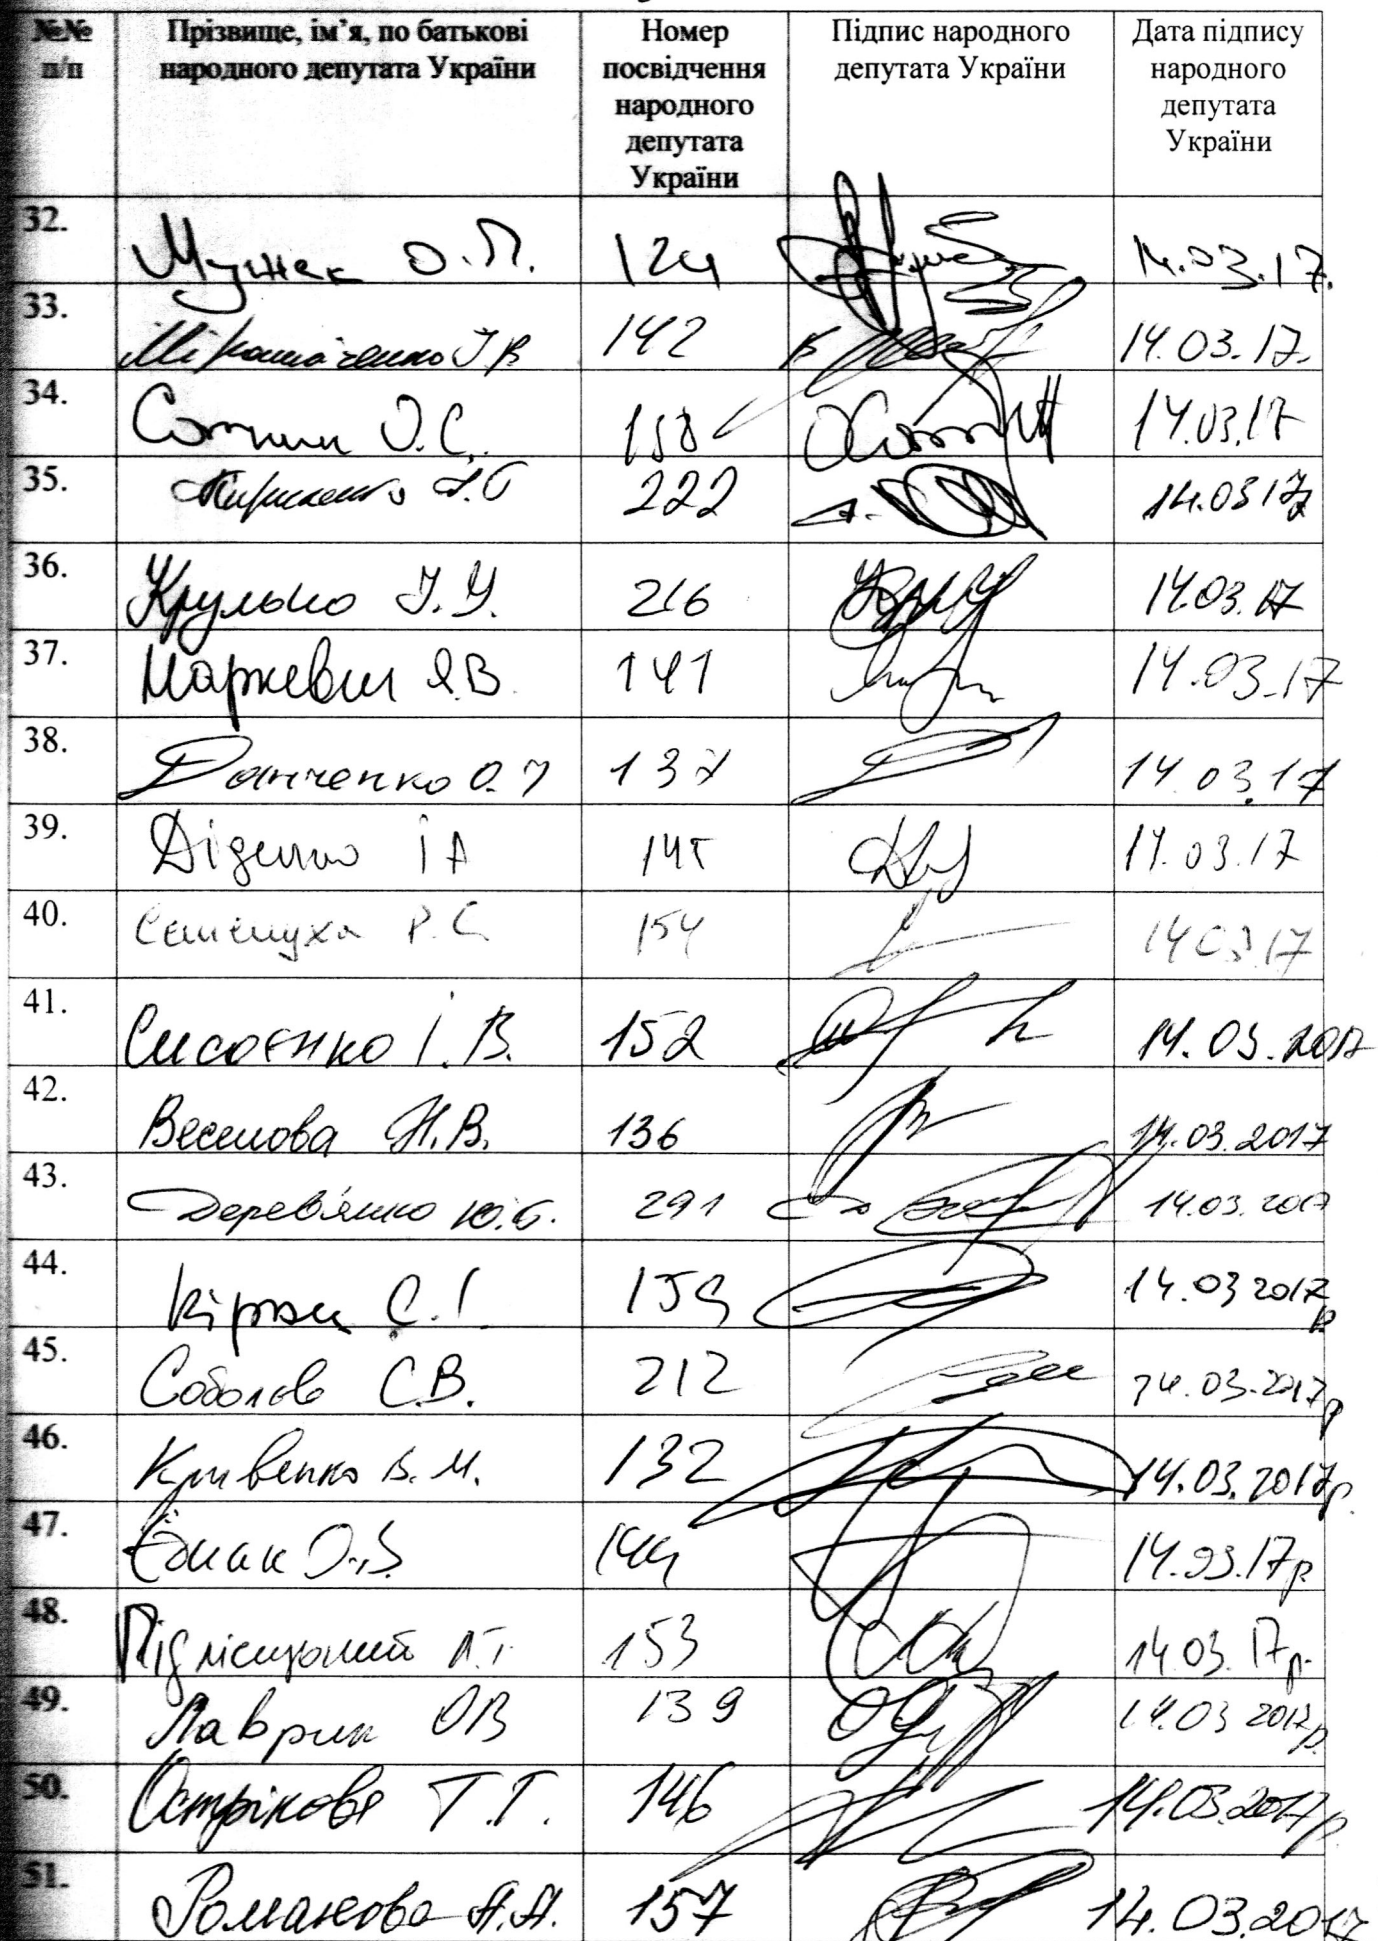 №№ Прізвище, ім’я, по батькові Номер Підпис народного Дата підпису
п/п народного депутата України посвідчення депутата України народного
народного депутата
депутата України
України
32. О.П. 124 14.03.17.
33. Мірошніченко І.В 142 14.03.17.
34. Сотник О.С. 158 14.03.17
35. Кириленко І.Г 222 14.03 17
36. Крулько І.І. 216 14.03.17
37. Маркевич Я.В. 141 14.03.17
38. Данченко О.І 137 14.03.17
39. Діденко І А 145 14.03.17
40. Семенуха Р.С. 154 14 03 17
41. Сисоєнко І.В. 152 14.03.2017
42. Веселова Н.В. 136 14.03.2017
43. Дерев'янко Ю.Б. 291 14.03.2017
44. Кіраль С.І. 159 14.03 2017р
45. Соболєв С.В. 212 14.03.2017р
46. Кривенко В.М. 132 14.03.2017р.
47. Єднак О.В 144 14.03.17р
48. Підлісецький Л.Т. 153 14 03. 17р.
49. Лаврик ОВ 139 14.03 2017р.
50. Острікова Т.Г. 146 14.03.2017р.
51. Романова А.А. 157 14.03.2017